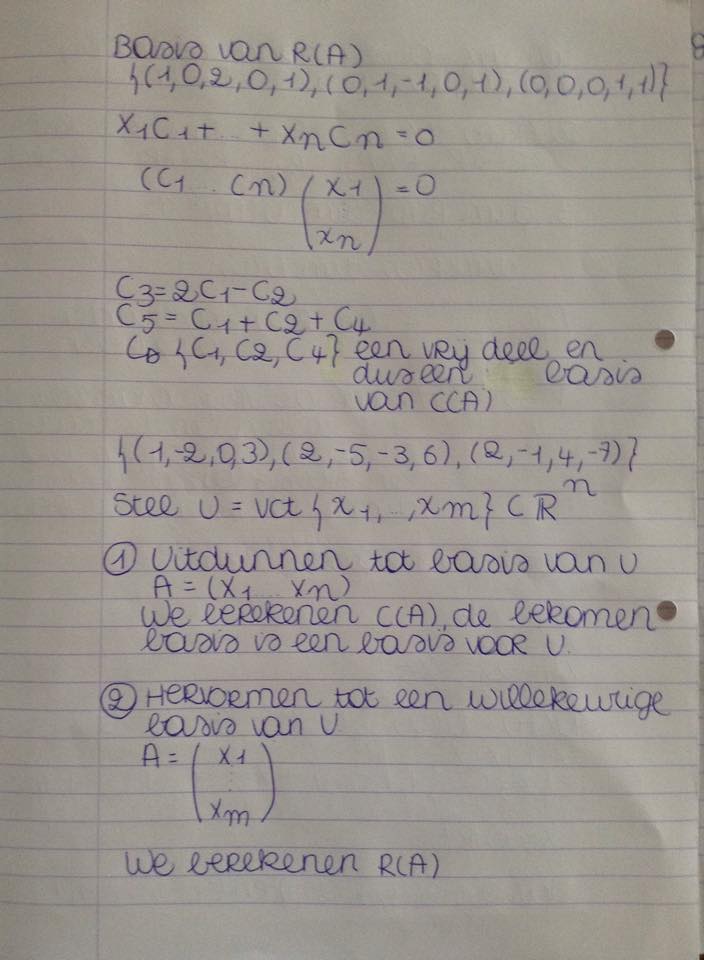 Basis van R(A)
{(1,0,2,0,1),(0,1,-1,0,1),(0,0,0,1,1)}
x1C1+...+xnCn=0
(C1...Cn)(x1
⋮
xn)=0
C3=2C1-C2
C5=C1+C2+C4
{C1,C2,C4} een vrij deel en
dus een basis
van C(A)
{(1,-2,0,3),(2,-5,-3,6),(2,-1,4,-7)}
Stel U=vct{x1,...,xm}⊂ℝ^n
① Uitdunnen tot basis van U
A=(x1...xn)
We berekenen C(A), de bekomen
basis is een basis voor U.
② Hervormen tot een willekeurige
basis van U
A=(x1
⋮
xm)
We berekenen R(A)